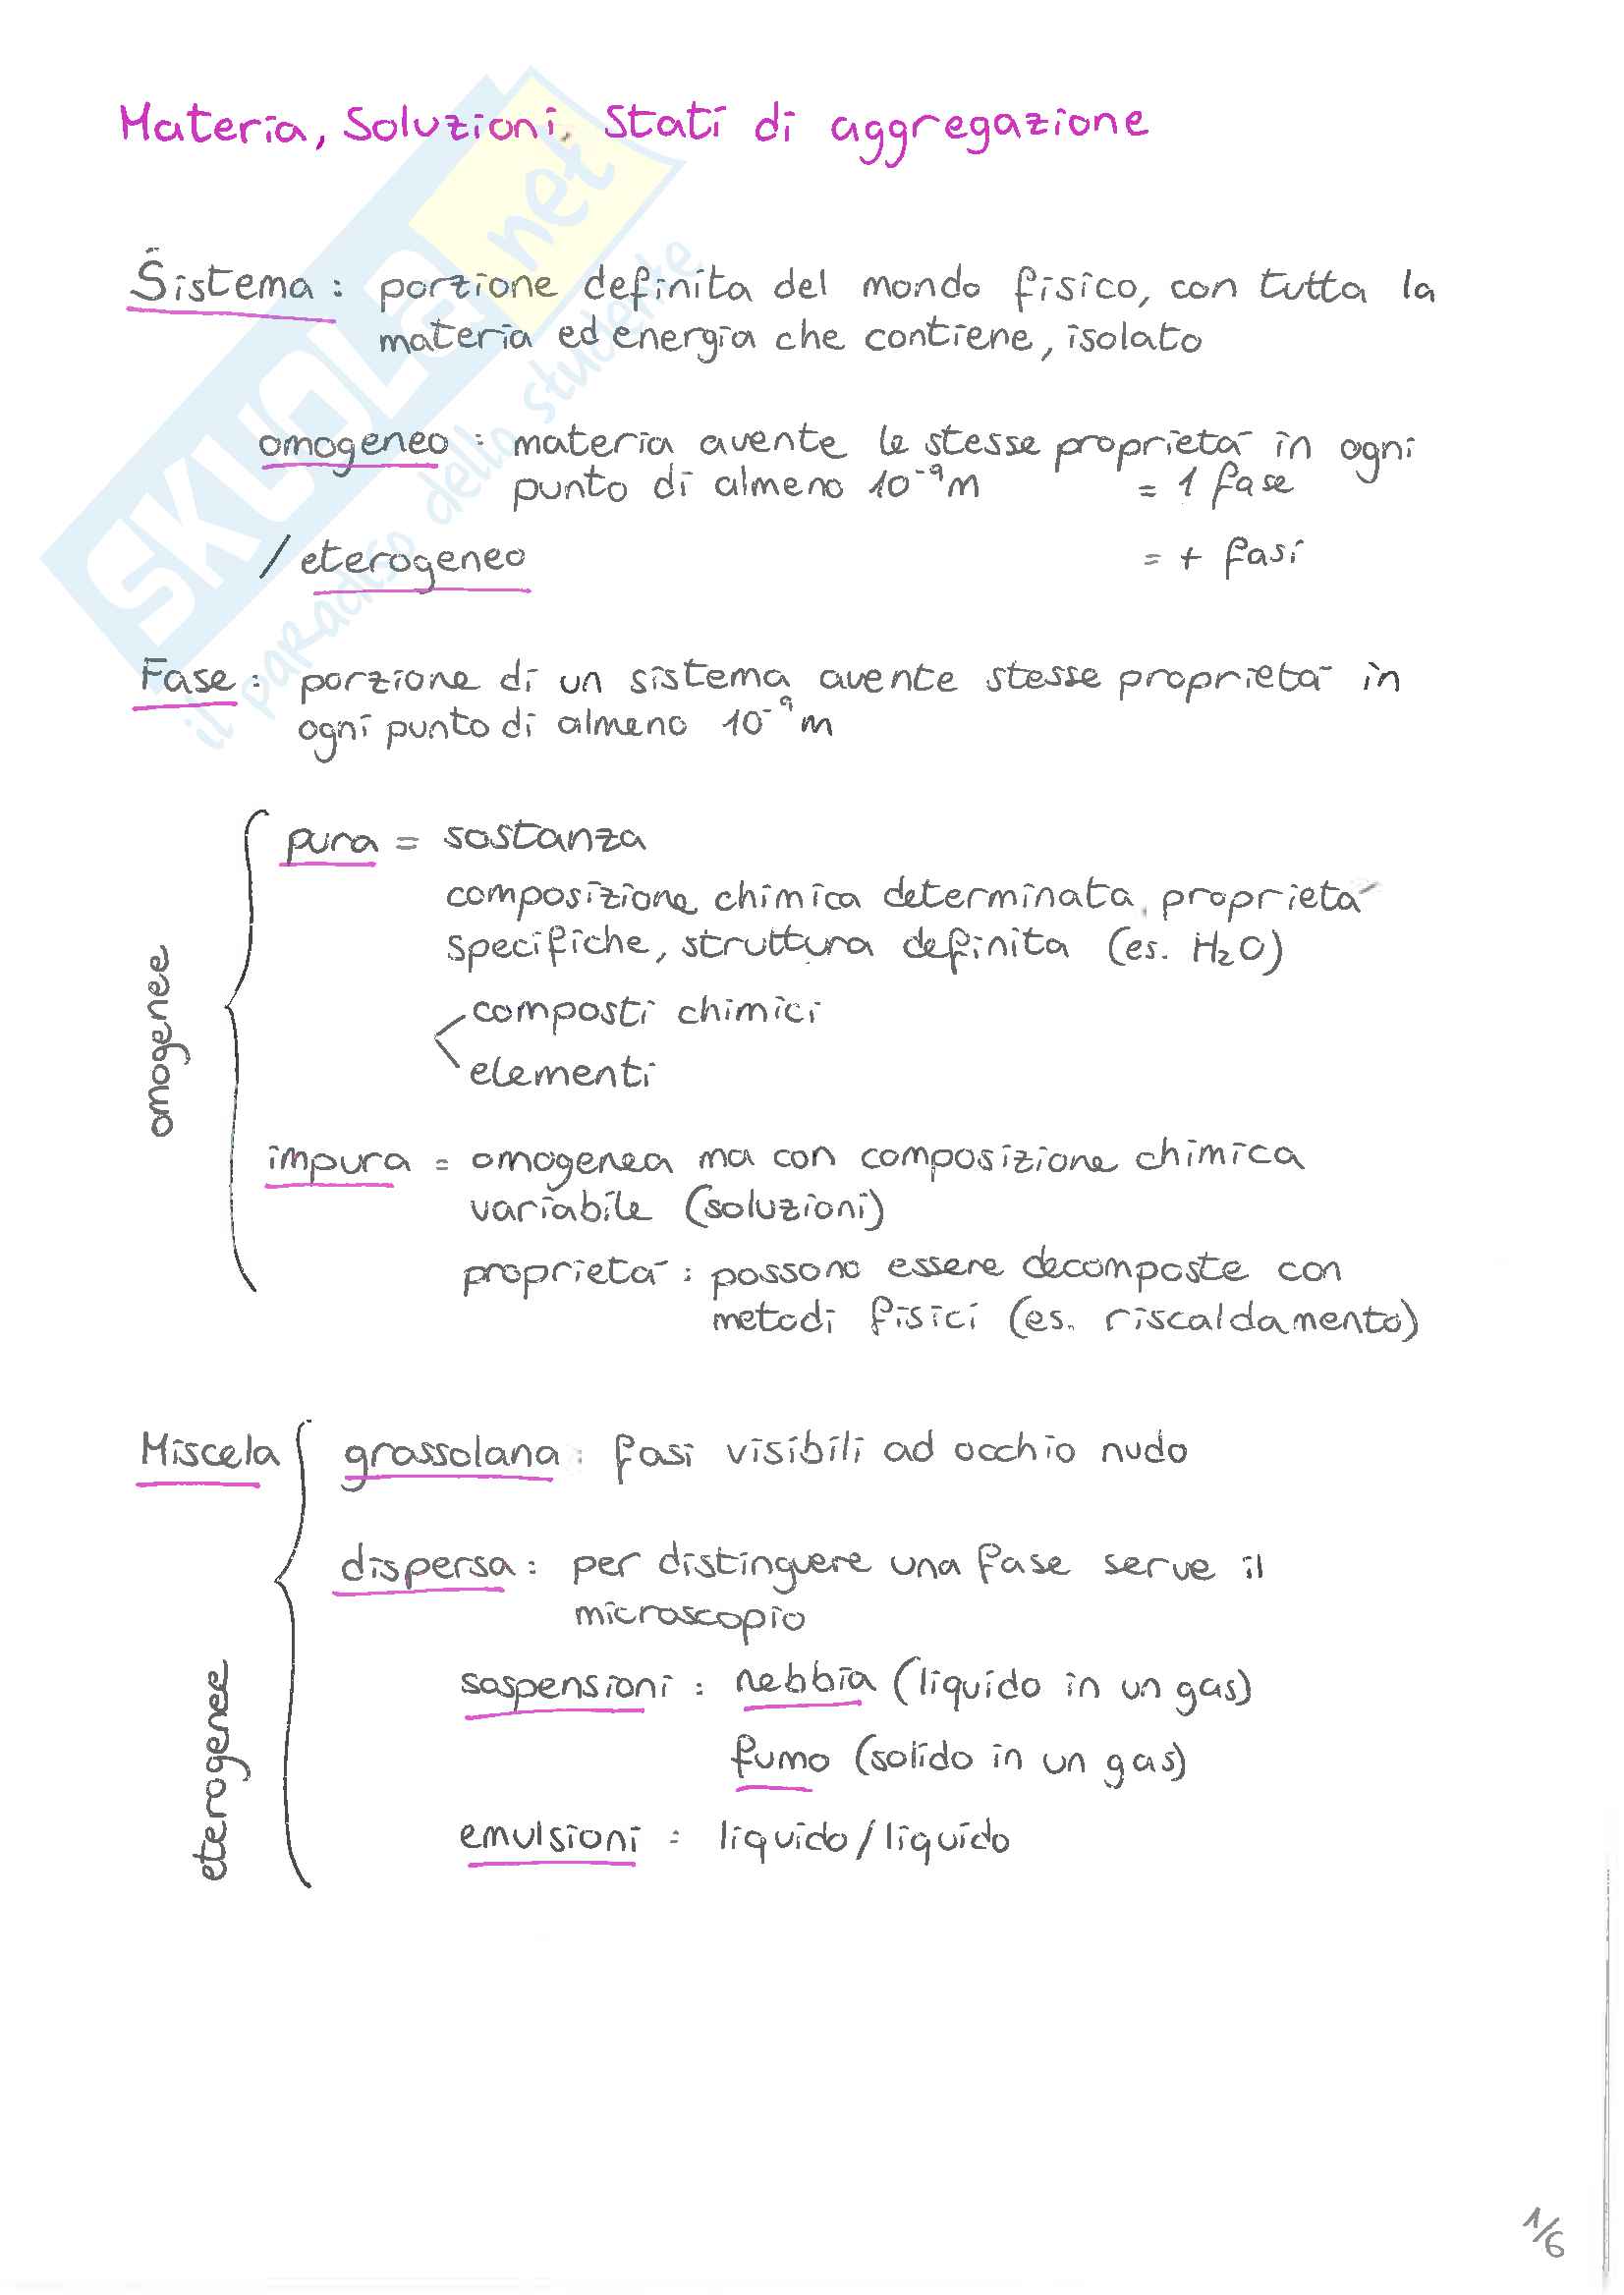 Materia, Soluzioni, Stati di aggregazione
Sistema : porzione definita del mondo fisico, con tutta la
materia ed energia che contiene, isolato
omogeneo : materia avente le stesse proprietà in ogni
punto di almeno 10⁻⁹ m = 1 fase
/ eterogeneo = + fasi
Fase : porzione di un sistema avente stesse proprietà in
ogni punto di almeno 10⁻⁹ m
omogenee
pura = sostanza
composizione chimica determinata, proprietà
specifiche, struttura definita (es. H₂O)
composti chimici
elementi
impura = omogenea ma con composizione chimica
variabile (soluzioni)
proprietà : possono essere decomposte con
metodi fisici (es. riscaldamento)
Miscela
eterogenee
grossolana : fasi visibili ad occhio nudo
dispersa : per distinguere una fase serve il
microscopio
sospensioni : nebbia (liquido in un gas)
fumo (solido in un gas)
emulsioni : liquido/liquido
1/6
SKUOLA.net
il paradiso dello studente